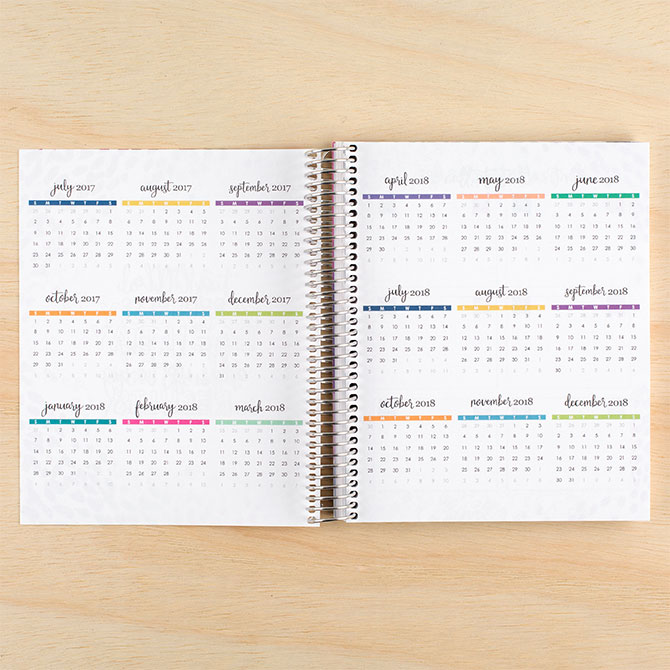 july 2017
S M T W T F S
1
2 3 4 5 6 7 8
9 10 11 12 13 14 15
16 17 18 19 20 21 22
23 24 25 26 27 28 29
30 31
august 2017
S M T W T F S
1 2 3 4 5
6 7 8 9 10 11 12
13 14 15 16 17 18 19
20 21 22 23 24 25 26
27 28 29 30 31
september 2017
S M T W T F S
1 2
3 4 5 6 7 8 9
10 11 12 13 14 15 16
17 18 19 20 21 22 23
24 25 26 27 28 29 30
october 2017
S M T W T F S
1 2 3 4 5 6 7
8 9 10 11 12 13 14
15 16 17 18 19 20 21
22 23 24 25 26 27 28
29 30 31
november 2017
S M T W T F S
1 2 3 4
5 6 7 8 9 10 11
12 13 14 15 16 17 18
19 20 21 22 23 24 25
26 27 28 29 30
december 2017
S M T W T F S
1 2
3 4 5 6 7 8 9
10 11 12 13 14 15 16
17 18 19 20 21 22 23
24 25 26 27 28 29 30
31
january 2018
S M T W T F S
1 2 3 4 5 6
7 8 9 10 11 12 13
14 15 16 17 18 19 20
21 22 23 24 25 26 27
28 29 30 31
february 2018
S M T W T F S
1 2 3
4 5 6 7 8 9 10
11 12 13 14 15 16 17
18 19 20 21 22 23 24
25 26 27 28
march 2018
S M T W T F S
1 2 3
4 5 6 7 8 9 10
11 12 13 14 15 16 17
18 19 20 21 22 23 24
25 26 27 28 29 30 31
april 2018
S M T W T F S
1 2 3 4 5 6 7
8 9 10 11 12 13 14
15 16 17 18 19 20 21
22 23 24 25 26 27 28
29 30
may 2018
S M T W T F S
1 2 3 4 5
6 7 8 9 10 11 12
13 14 15 16 17 18 19
20 21 22 23 24 25 26
27 28 29 30 31
june 2018
S M T W T F S
1 2
3 4 5 6 7 8 9
10 11 12 13 14 15 16
17 18 19 20 21 22 23
24 25 26 27 28 29 30
july 2018
S M T W T F S
1 2 3 4 5 6 7
8 9 10 11 12 13 14
15 16 17 18 19 20 21
22 23 24 25 26 27 28
29 30 31
august 2018
S M T W T F S
1 2 3 4
5 6 7 8 9 10 11
12 13 14 15 16 17 18
19 20 21 22 23 24 25
26 27 28 29 30 31
september 2018
S M T W T F S
1
2 3 4 5 6 7 8
9 10 11 12 13 14 15
16 17 18 19 20 21 22
23 24 25 26 27 28 29
30
october 2018
S M T W T F S
1 2 3 4 5 6
7 8 9 10 11 12 13
14 15 16 17 18 19 20
21 22 23 24 25 26 27
28 29 30 31
november 2018
S M T W T F S
1 2 3
4 5 6 7 8 9 10
11 12 13 14 15 16 17
18 19 20 21 22 23 24
25 26 27 28 29 30
december 2018
S M T W T F S
1
2 3 4 5 6 7 8
9 10 11 12 13 14 15
16 17 18 19 20 21 22
23 24 25 26 27 28 29
30 31